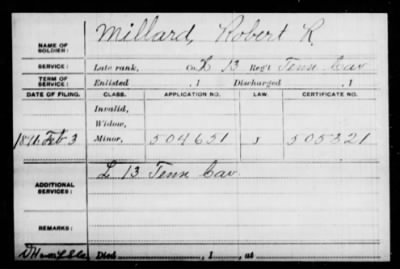 NAME OF SOLDIER: Millard, Robert R.
SERVICE: Late rank, Co. L 13 Reg't Tenn Cav
TERM OF SERVICE: Enlisted , 1 Discharged , 1
DATE OF FILING. CLASS. APPLICATION NO. LAW. CERTIFICATE NO.
Invalid,
Widow,
Feb 3 Minor, 504631 505321
ADDITIONAL SERVICES: L 13 Tenn Cav.
REMARKS:
Died , 1 , at